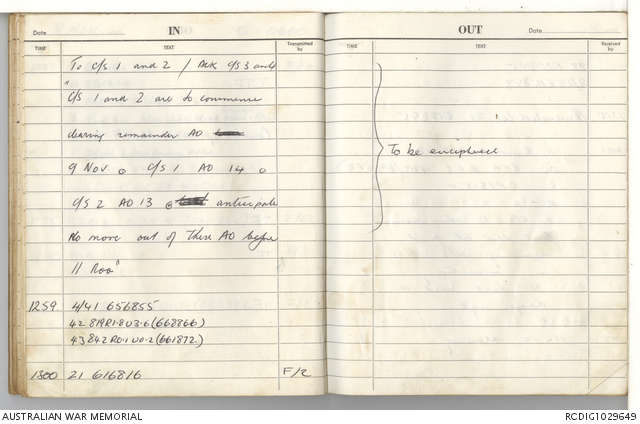 Date IN
TIME TEXT Transmitted by
To C/S 1 and 2 / Ack C/S 3 and
"
C/S 1 and 2 are to commence
clearing remainder AO
9 Nov o C/S 1 AO 14 o
C/S 2 AO 13 o anticipate
No move out of these AO before
11 Roo"
1259 4/41 656855
42 819R1.8U3.6(668866)
43 842R0.1U0.2(661872)
1800 21 616816 F/2
OUT Date
TIME TEXT Received by
To be enciphered
AUSTRALIAN WAR MEMORIAL RCDIG1029649